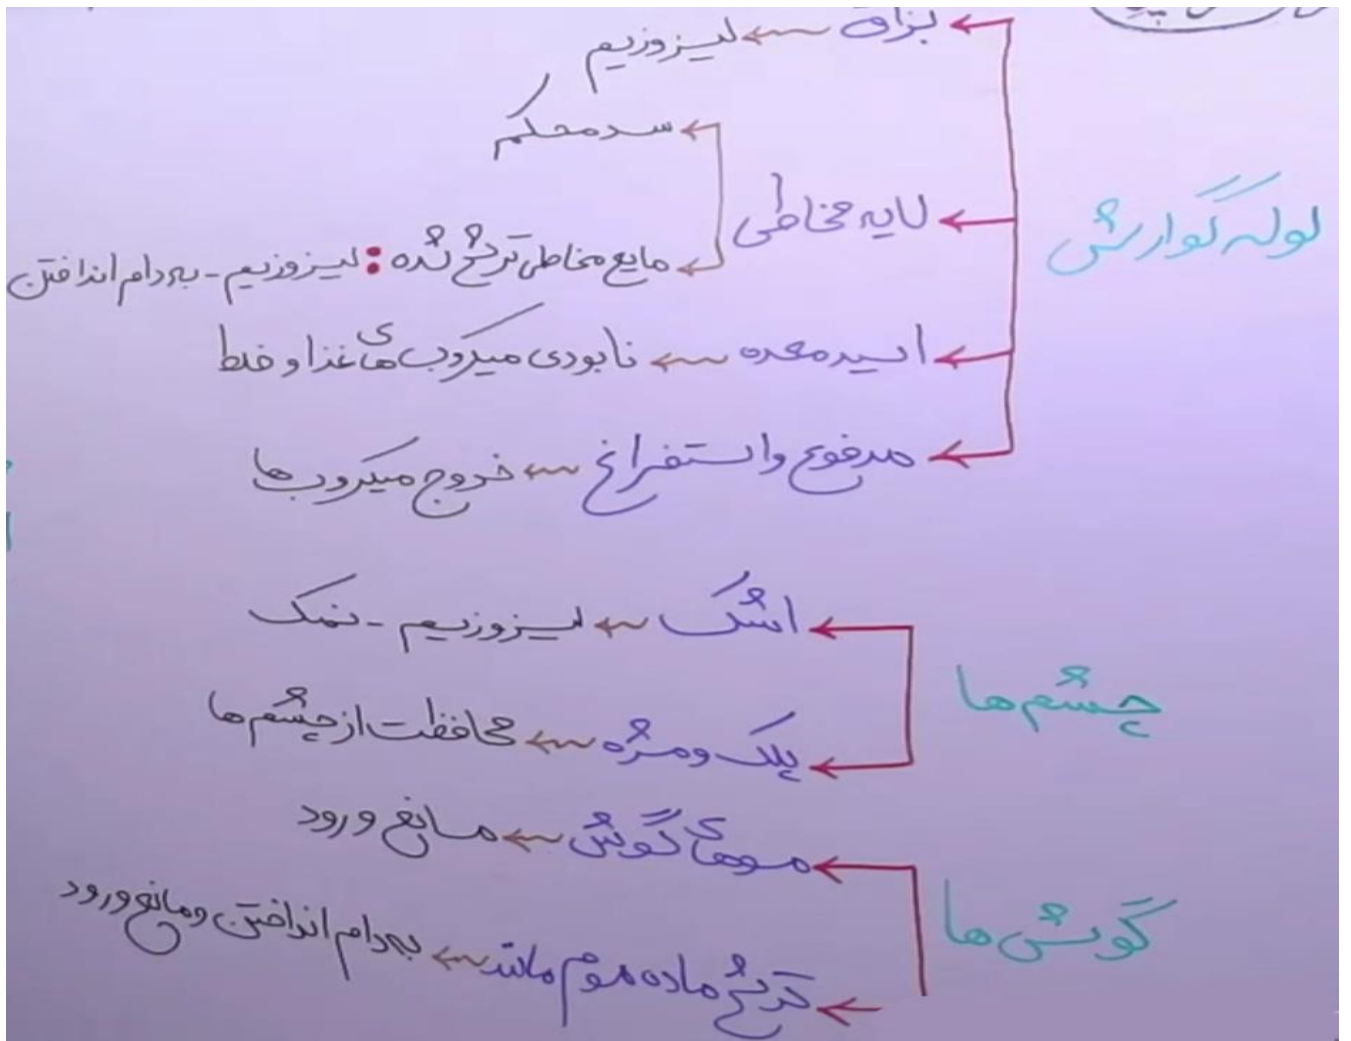 بزاق ← لیزوزیم
لوله گوارش
سد محکم
لایه مخاطی
مایع مخاطی ترشح شده : لیزوزیم - به دام انداختن
اسید معده ← نابودی میکروب های غذا و خلط
مدفوع و استفراغ ← خروج میکروب ها
چشم ها
اشک ← لیزوزیم - نمک
پلک و مژه ← محافظت از چشم ها
گوش ها
موهای گوش ← مانع ورود
ترشح ماده موم مانند ← به دام انداختن و مانع ورود